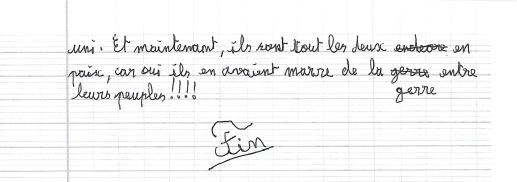 uni. Et maintenant, ils sont tout les deux endeore en
paix, car oui ils en avaient marre de la gerre entre
leurs peuples !!!! garre
Fin